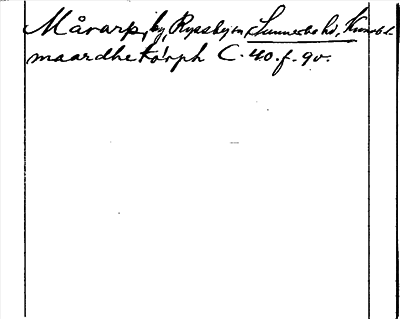 Mårarp, by, Ryssby sn, Sunnerbo hd, Kronob. l.
maardhetorph C. 40. f. 9v.